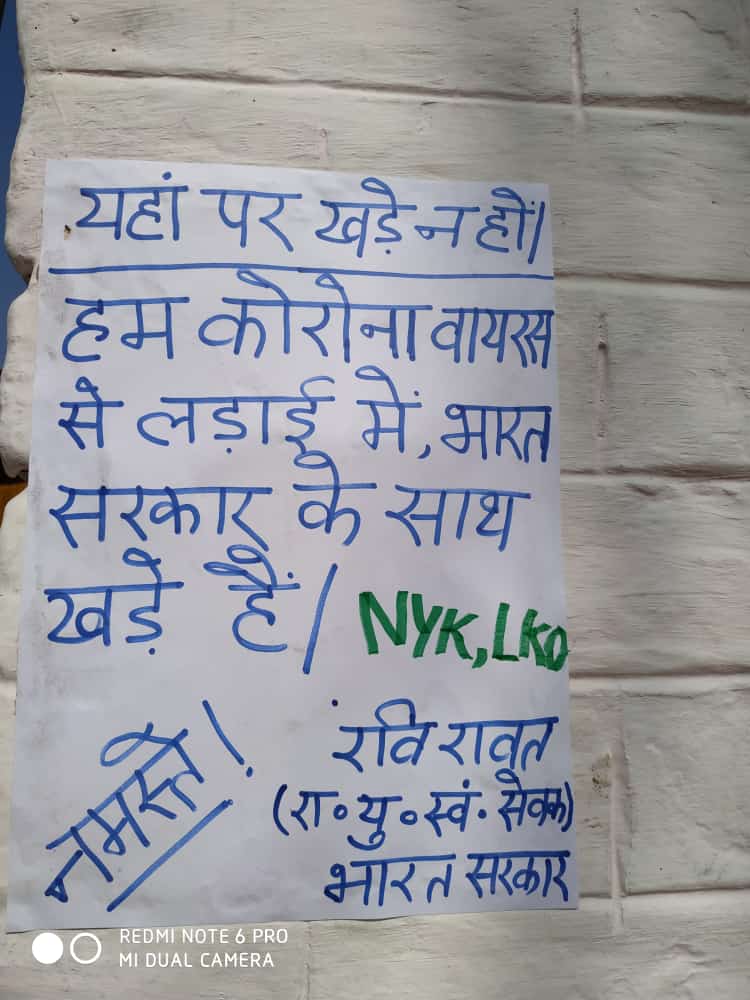 यहां पर खड़े न हों।
हम कोरोना वायरस
से लड़ाई में, भारत
सरकार के साथ
खड़े हैं।
NYK, LKO
नमस्ते!
रवि रावत
(रा॰यु॰स्वं॰सेवक)
भारत सरकार
REDMI NOTE 6 PRO
MI DUAL CAMERA